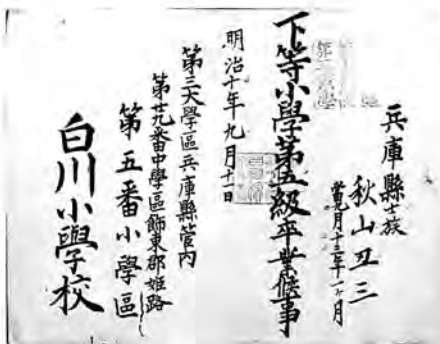 兵庫縣士族
秋山丑三
當九月十三年一ヶ月
下等小學第五級卒業候事
明治十年九月十一日
第三大學區兵庫縣管内
第廿九番中學區飾東郡姫路
第五番小學區
白川小學校